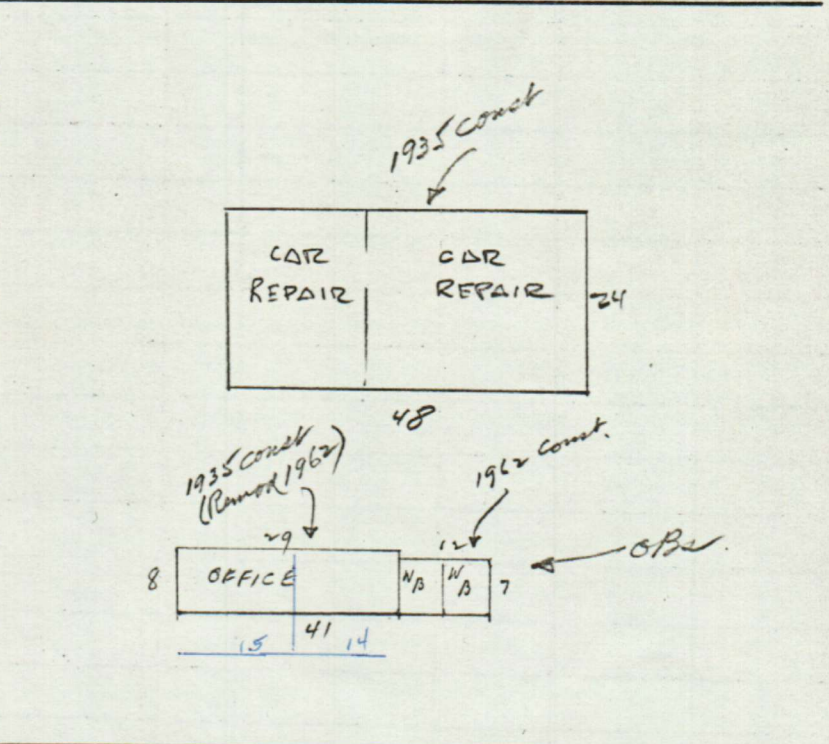 1935 const
CAR
REPAIR
CAR
REPAIR
24
48
1935 const
(Remod 1962)
1962 const.
29
12
OBs.
8
OFFICE
W/B
W/B
7
41
15
14